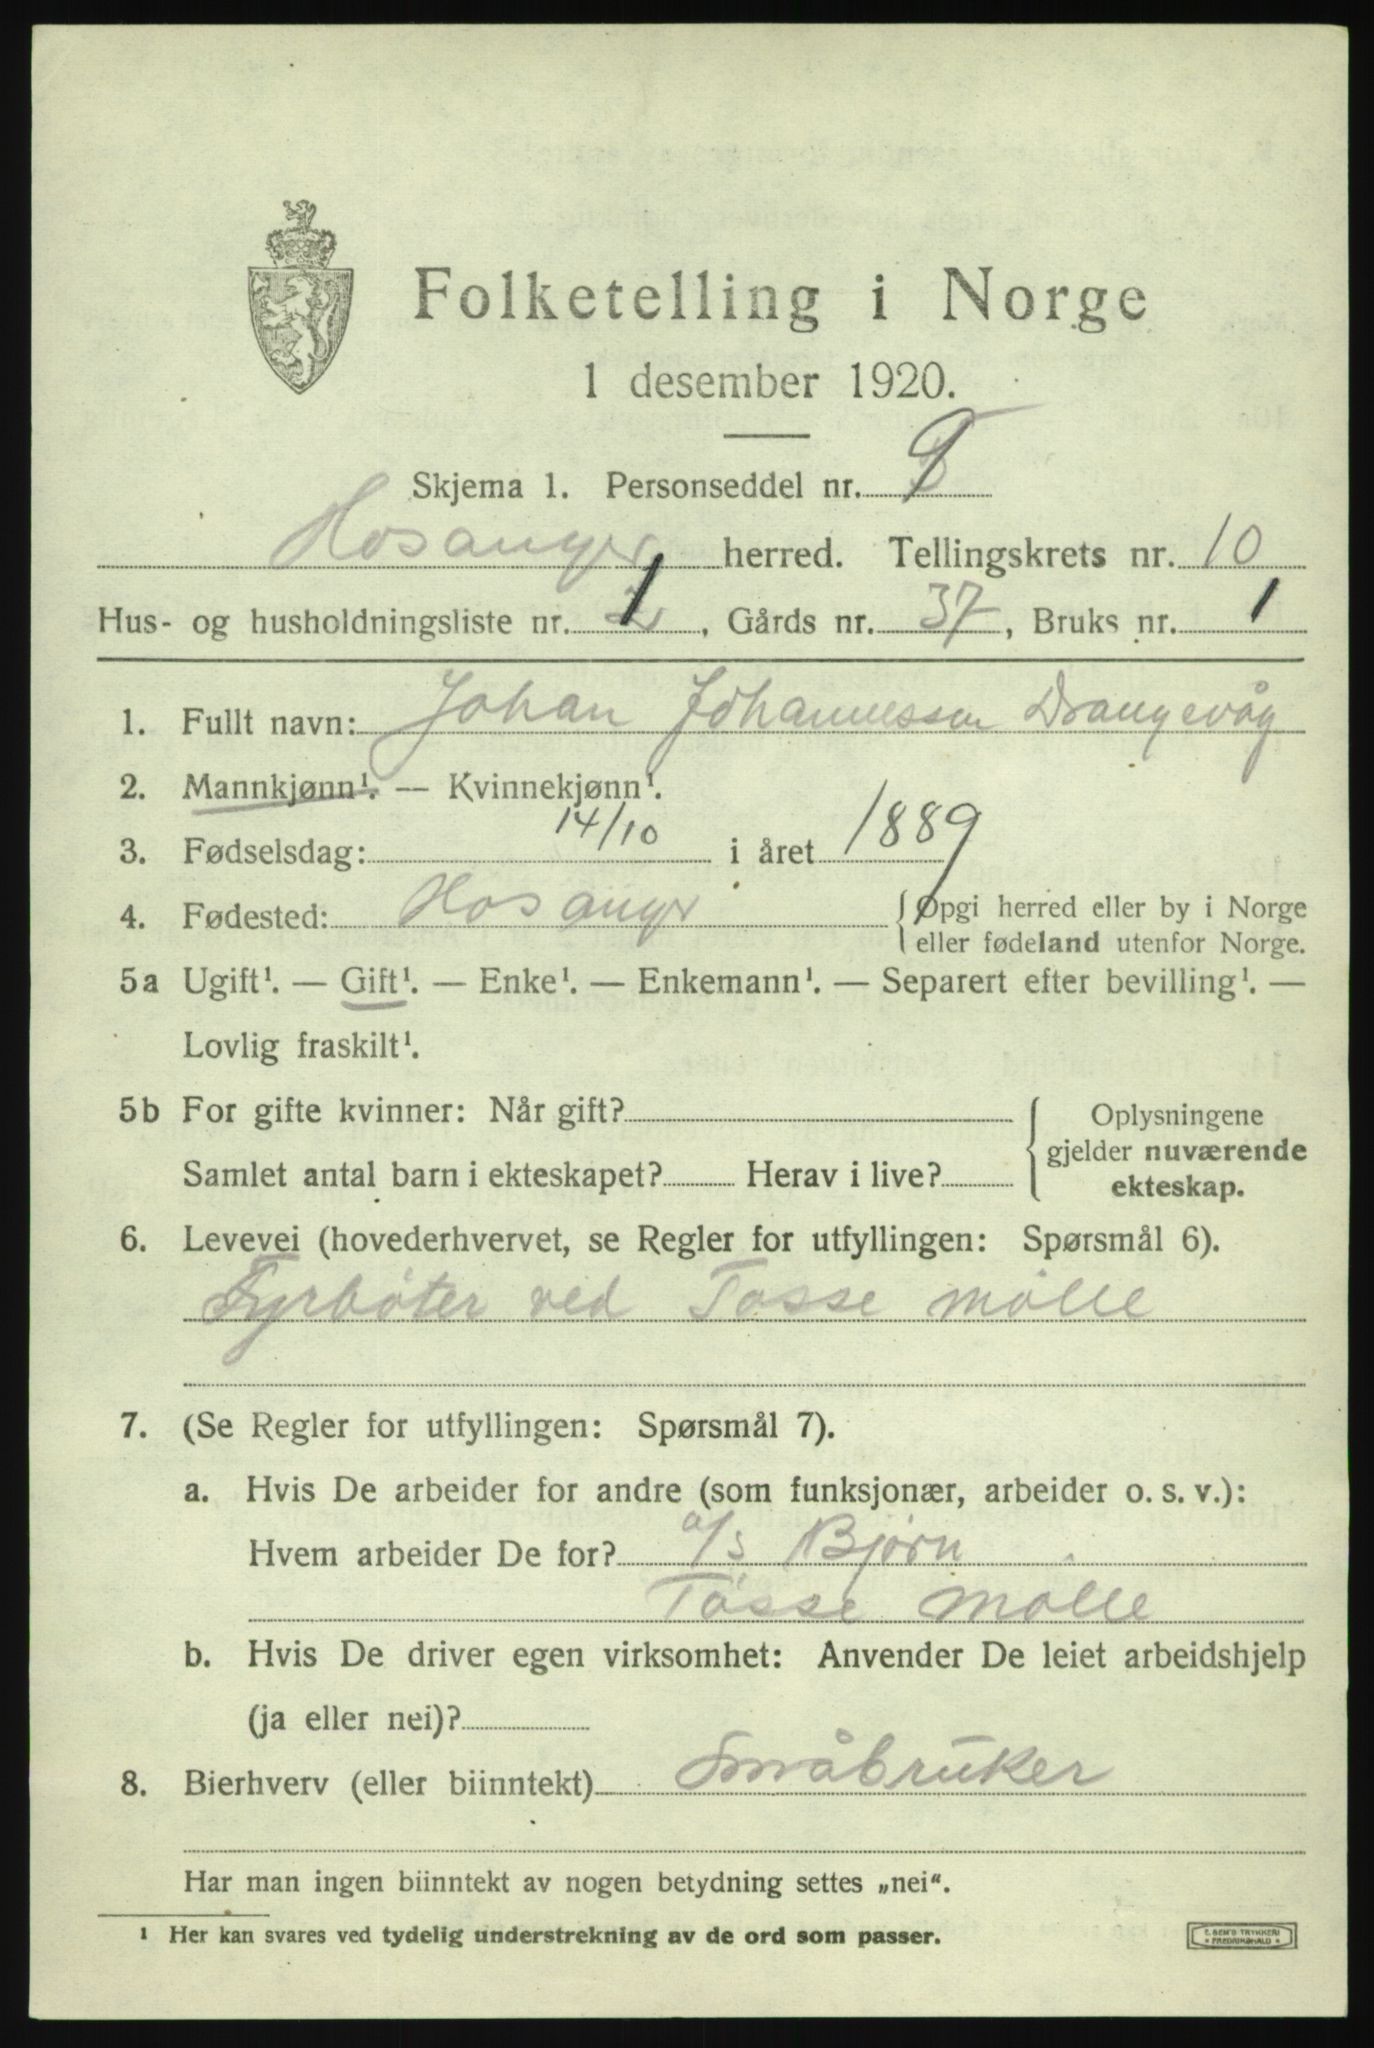 Folketelling i Norge
1 desember 1920.
Skjema 1. Personseddel nr. 9
Hosanger herred. Tellingskrets nr. 10
Hus- og husholdningsliste nr. 1, Gårds nr. 37, Bruks nr. 1
1. Fullt navn: Johan Johannessen Drangevåg
2. Mannkjønn¹. — Kvinnekjønn¹.
3. Fødselsdag: 14/10 i året 1889
4. Fødested: Hosanger {Opgi herred eller by i Norge
eller fødeland utenfor Norge.
5a Ugift¹. — Gift¹. — Enke¹. — Enkemann¹. — Separert efter bevilling¹. —
Lovlig fraskilt¹.
5b For gifte kvinner: Når gift?
Samlet antal barn i ekteskapet? Herav i live?
Oplysningene
gjelder nuværende
ekteskap.
6. Levevei (hovederhvervet, se Regler for utfyllingen: Spørsmål 6).
Fyrbøter ved Tøsse mølle
7. (Se Regler for utfyllingen: Spørsmål 7).
a. Hvis De arbeider for andre (som funksjonær, arbeider o. s. v.):
Hvem arbeider De for? a/s Bjørn
Tøsse mølle
b. Hvis De driver egen virksomhet: Anvender De leiet arbeidshjelp
(ja eller nei)?
8. Bierhverv (eller biinntekt) Småbruker
Har man ingen biinntekt av nogen betydning settes „nei“.
¹ Her kan svares ved tydelig understrekning av de ord som passer.
E. SEM'S TRYKKERI
* FREDRIKSHALD *